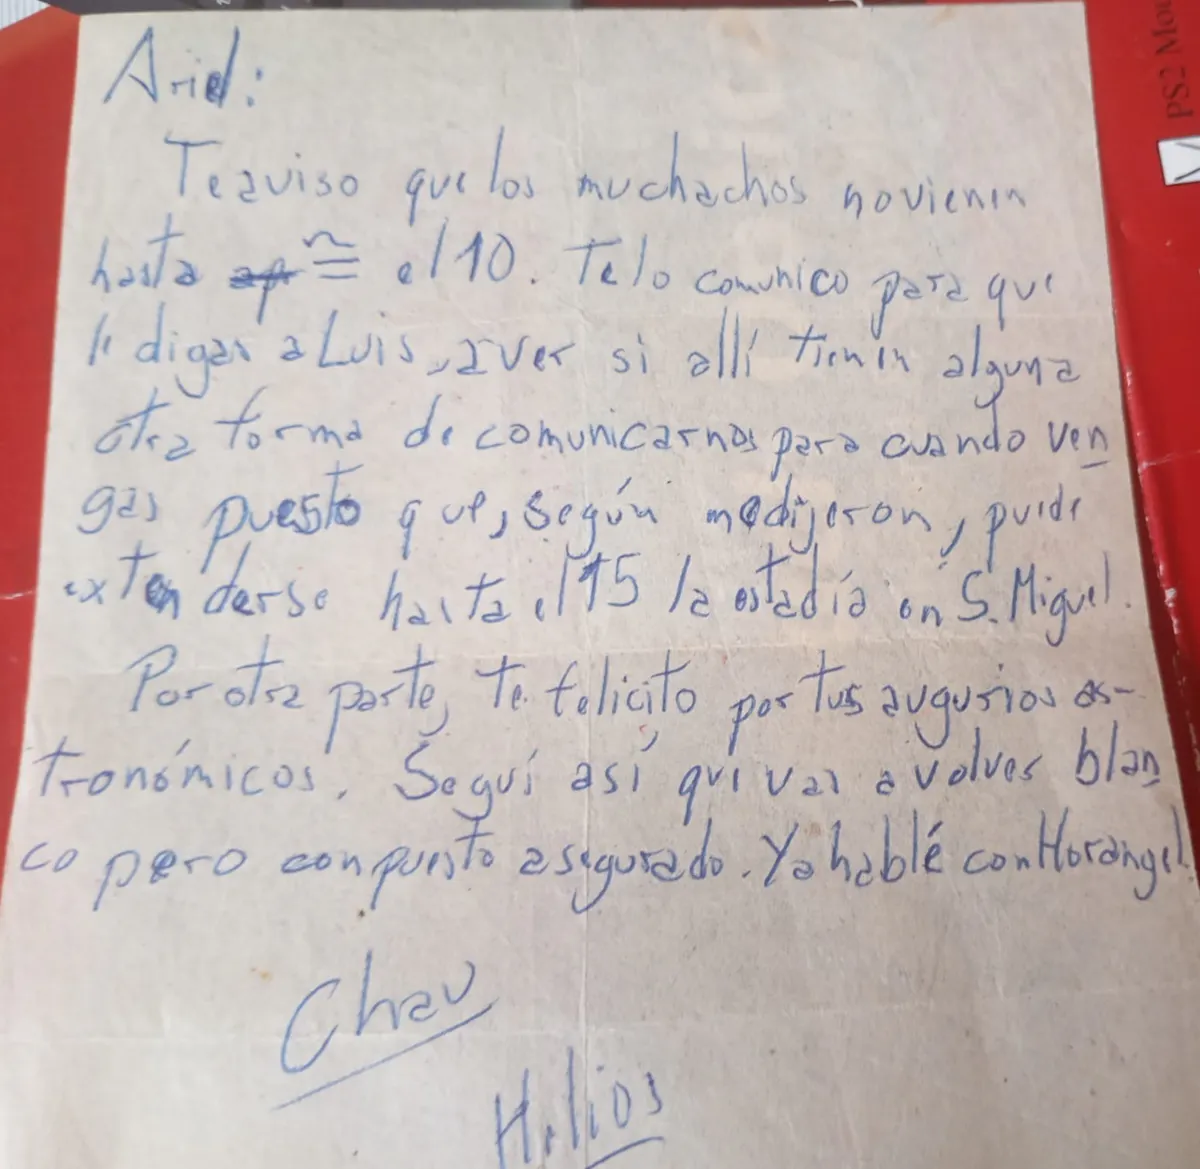 Ariel:
Te aviso que los muchachos no vienen
hasta ≅ el 10. Te lo comunico para que
le digas a Luis, a ver si allí tienen alguna
otra forma de comunicarnos para cuando ven
gas puesto que, según me dijeron, puede
extenderse hasta el 15 la estadía en S. Miguel.
Por otra parte, te felicito por tus augurios as-
tronómicos. Seguí así que vas a volver blan
co pero con puesto asegurado. Ya hablé con Horangel.
Chau
Helios
PS2 Mou